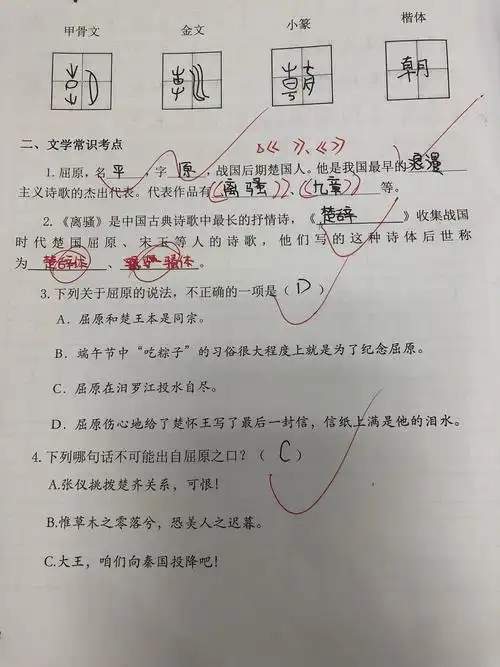 甲骨文 金文 小篆 楷体
朝
二、文学常识考点
《》、《》
1. 屈原，名平，字原，战国后期楚国人。他是我国最早的浪漫
主义诗歌的杰出代表。代表作品有《离骚》、《九章》等。
2.《离骚》是中国古典诗歌中最长的抒情诗，《楚辞》收集战国
时代楚国屈原、宋玉等人的诗歌，他们写的这种诗体后世称
为楚辞体、骚体。
3. 下列关于屈原的说法，不正确的一项是（D）
A．屈原和楚王本是同宗。
B．端午节中“吃粽子”的习俗很大程度上就是为了纪念屈原。
C．屈原在汨罗江投水自尽。
D．屈原伤心地给了楚怀王写了最后一封信，信纸上满是他的泪水。
4. 下列哪句话不可能出自屈原之口？（C）
A.张仪挑拨楚齐关系，可恨！
B.惟草木之零落兮，恐美人之迟暮。
C.大王，咱们向秦国投降吧！